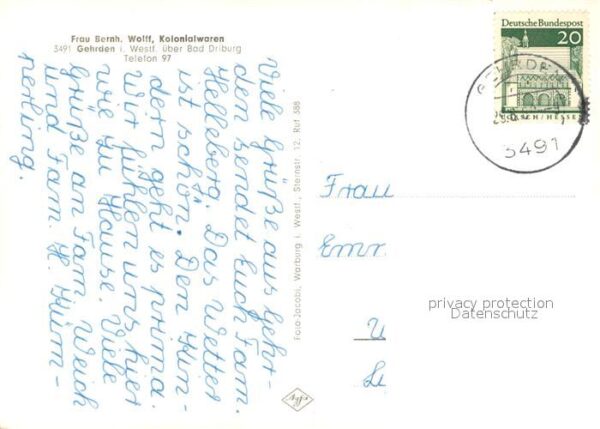 Frau Bernh. Wolff, Kolonialwaren
3491 Gehrden i. Westf. über Bad Driburg
Telefon 97
Viele Grüße aus Gehr-
den sendet Euch Fam.
Helleberg. Das Wetter
ist schön. Den Kin-
dern geht es prima.
Wir fühlen uns hier
wie zu Hause. Viele
Grüße an Fam. Weich
und Fam. H.
nerling.
Foto-Jacobi, Warburg i. Westf., Sternstr. 12, Ruf 588
Agfa
Deutsche Bundespost
20
LORSCH/HESSEN
GEHRDEN
3491
Frau
Emr
U
Li
privacy protection
Datenschutz